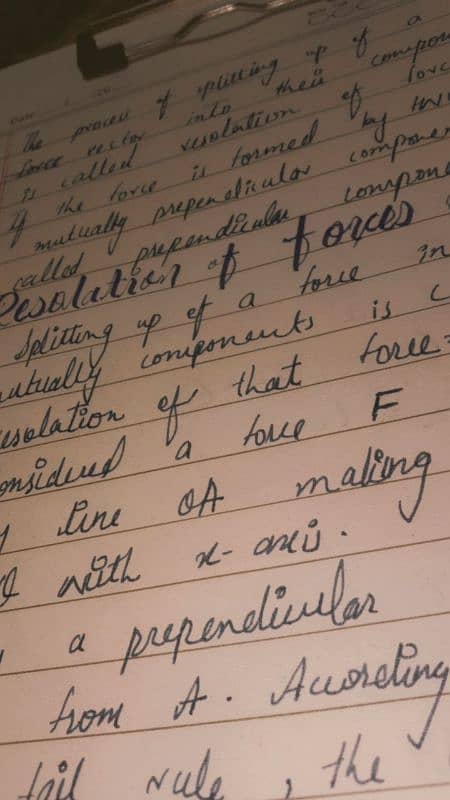 The process of splitting up of a
force vector into their compon
is called resolution of forc
If the force is formed by
mutually prependicular componen
called prependicular compone
Resolution of forces
Splitting up of a force in
utually components is c
esolation of that force
onsidered a force F
line OA making
with x-axis.
a prependicular
from A. According
tail rule, the